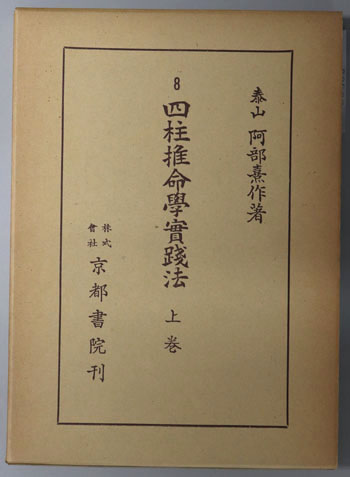 泰山 阿部熹作著
8 四柱推命學實踐法 上巻
株式會社 京都書院刊